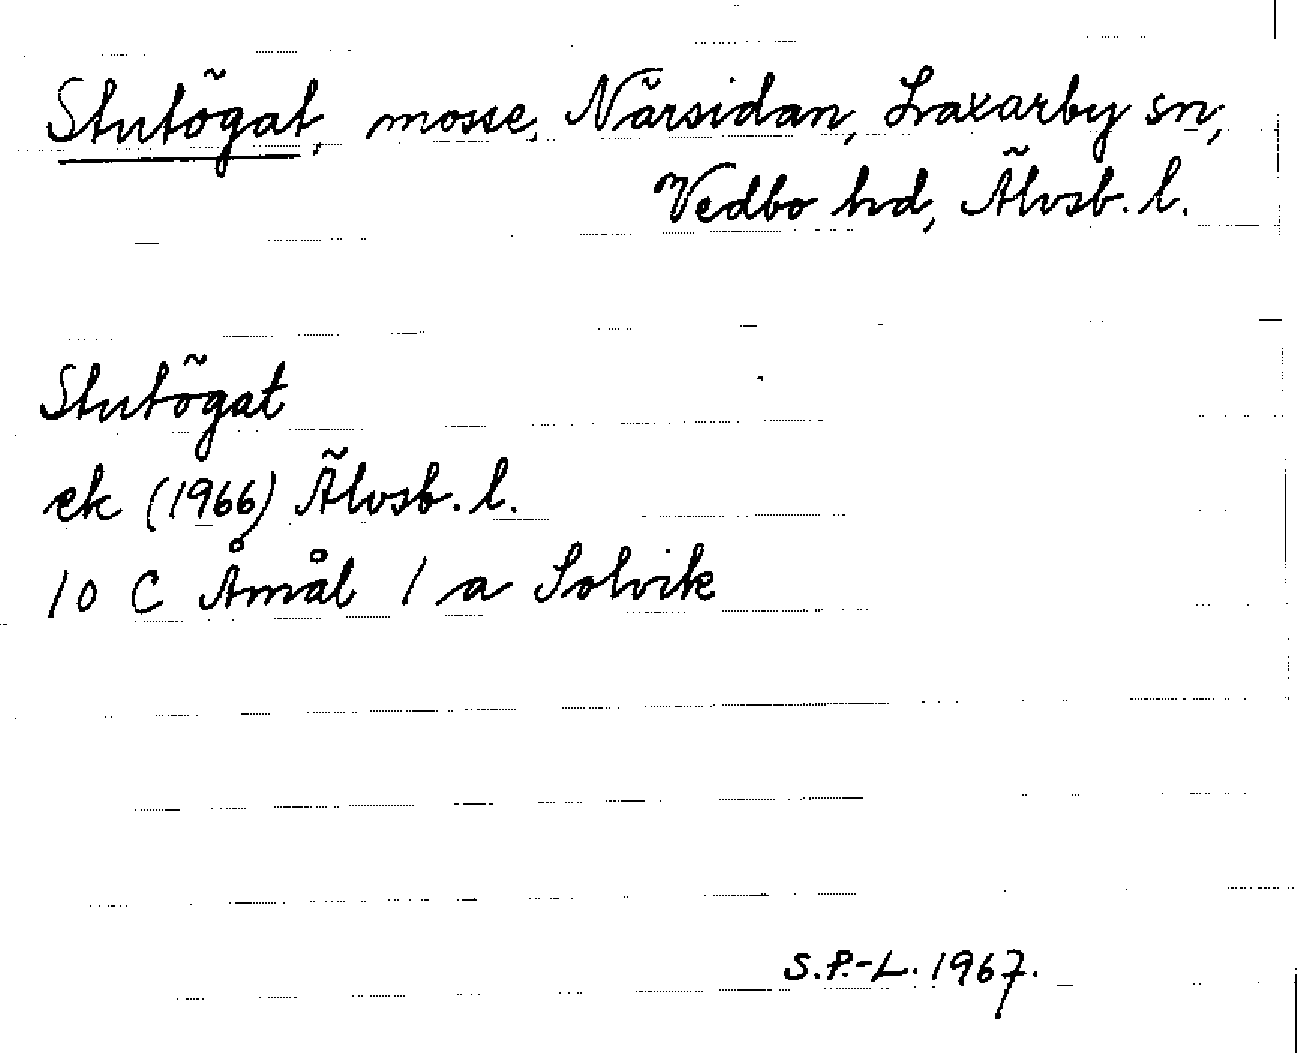 Stutögat, mosse, Närsidan, Laxarby sn,
Vedbo hd, Älvsb. l.
Stutögat
ek (1966) Älvsb. l.
10 C Åmål 1 a Solvik
S.P.-L. 1967.